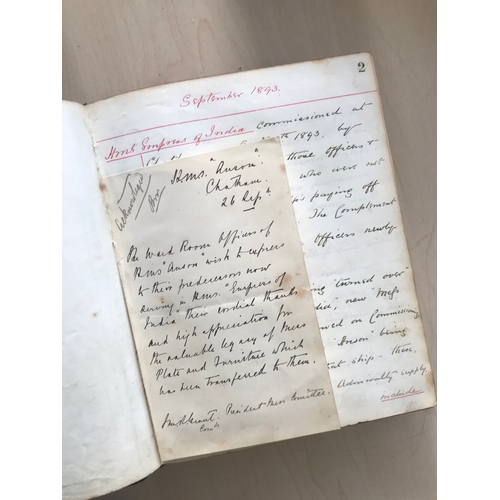 2
September 1893.
HMS Empress of India Commissioned at
1893. by
those officers &
who were not
paying off
The Complement
officers newly
being "turned over"
new Mess
on Commissioning
"Anson" being
ship - then,
Admiralty supply
include
Acknowledged
H.M.S. "Anson".
Chatham.
26 Sept.
The Ward Room Officers of
H.M.S "Anson" wish to express
to their predecessors now
serving in H.M.S. "Empress of
India" their cordial thanks
and high appreciation for
the valuable legacy of Mess
Plate and Furniture which
has been transferred to them.
President Mess Committee.